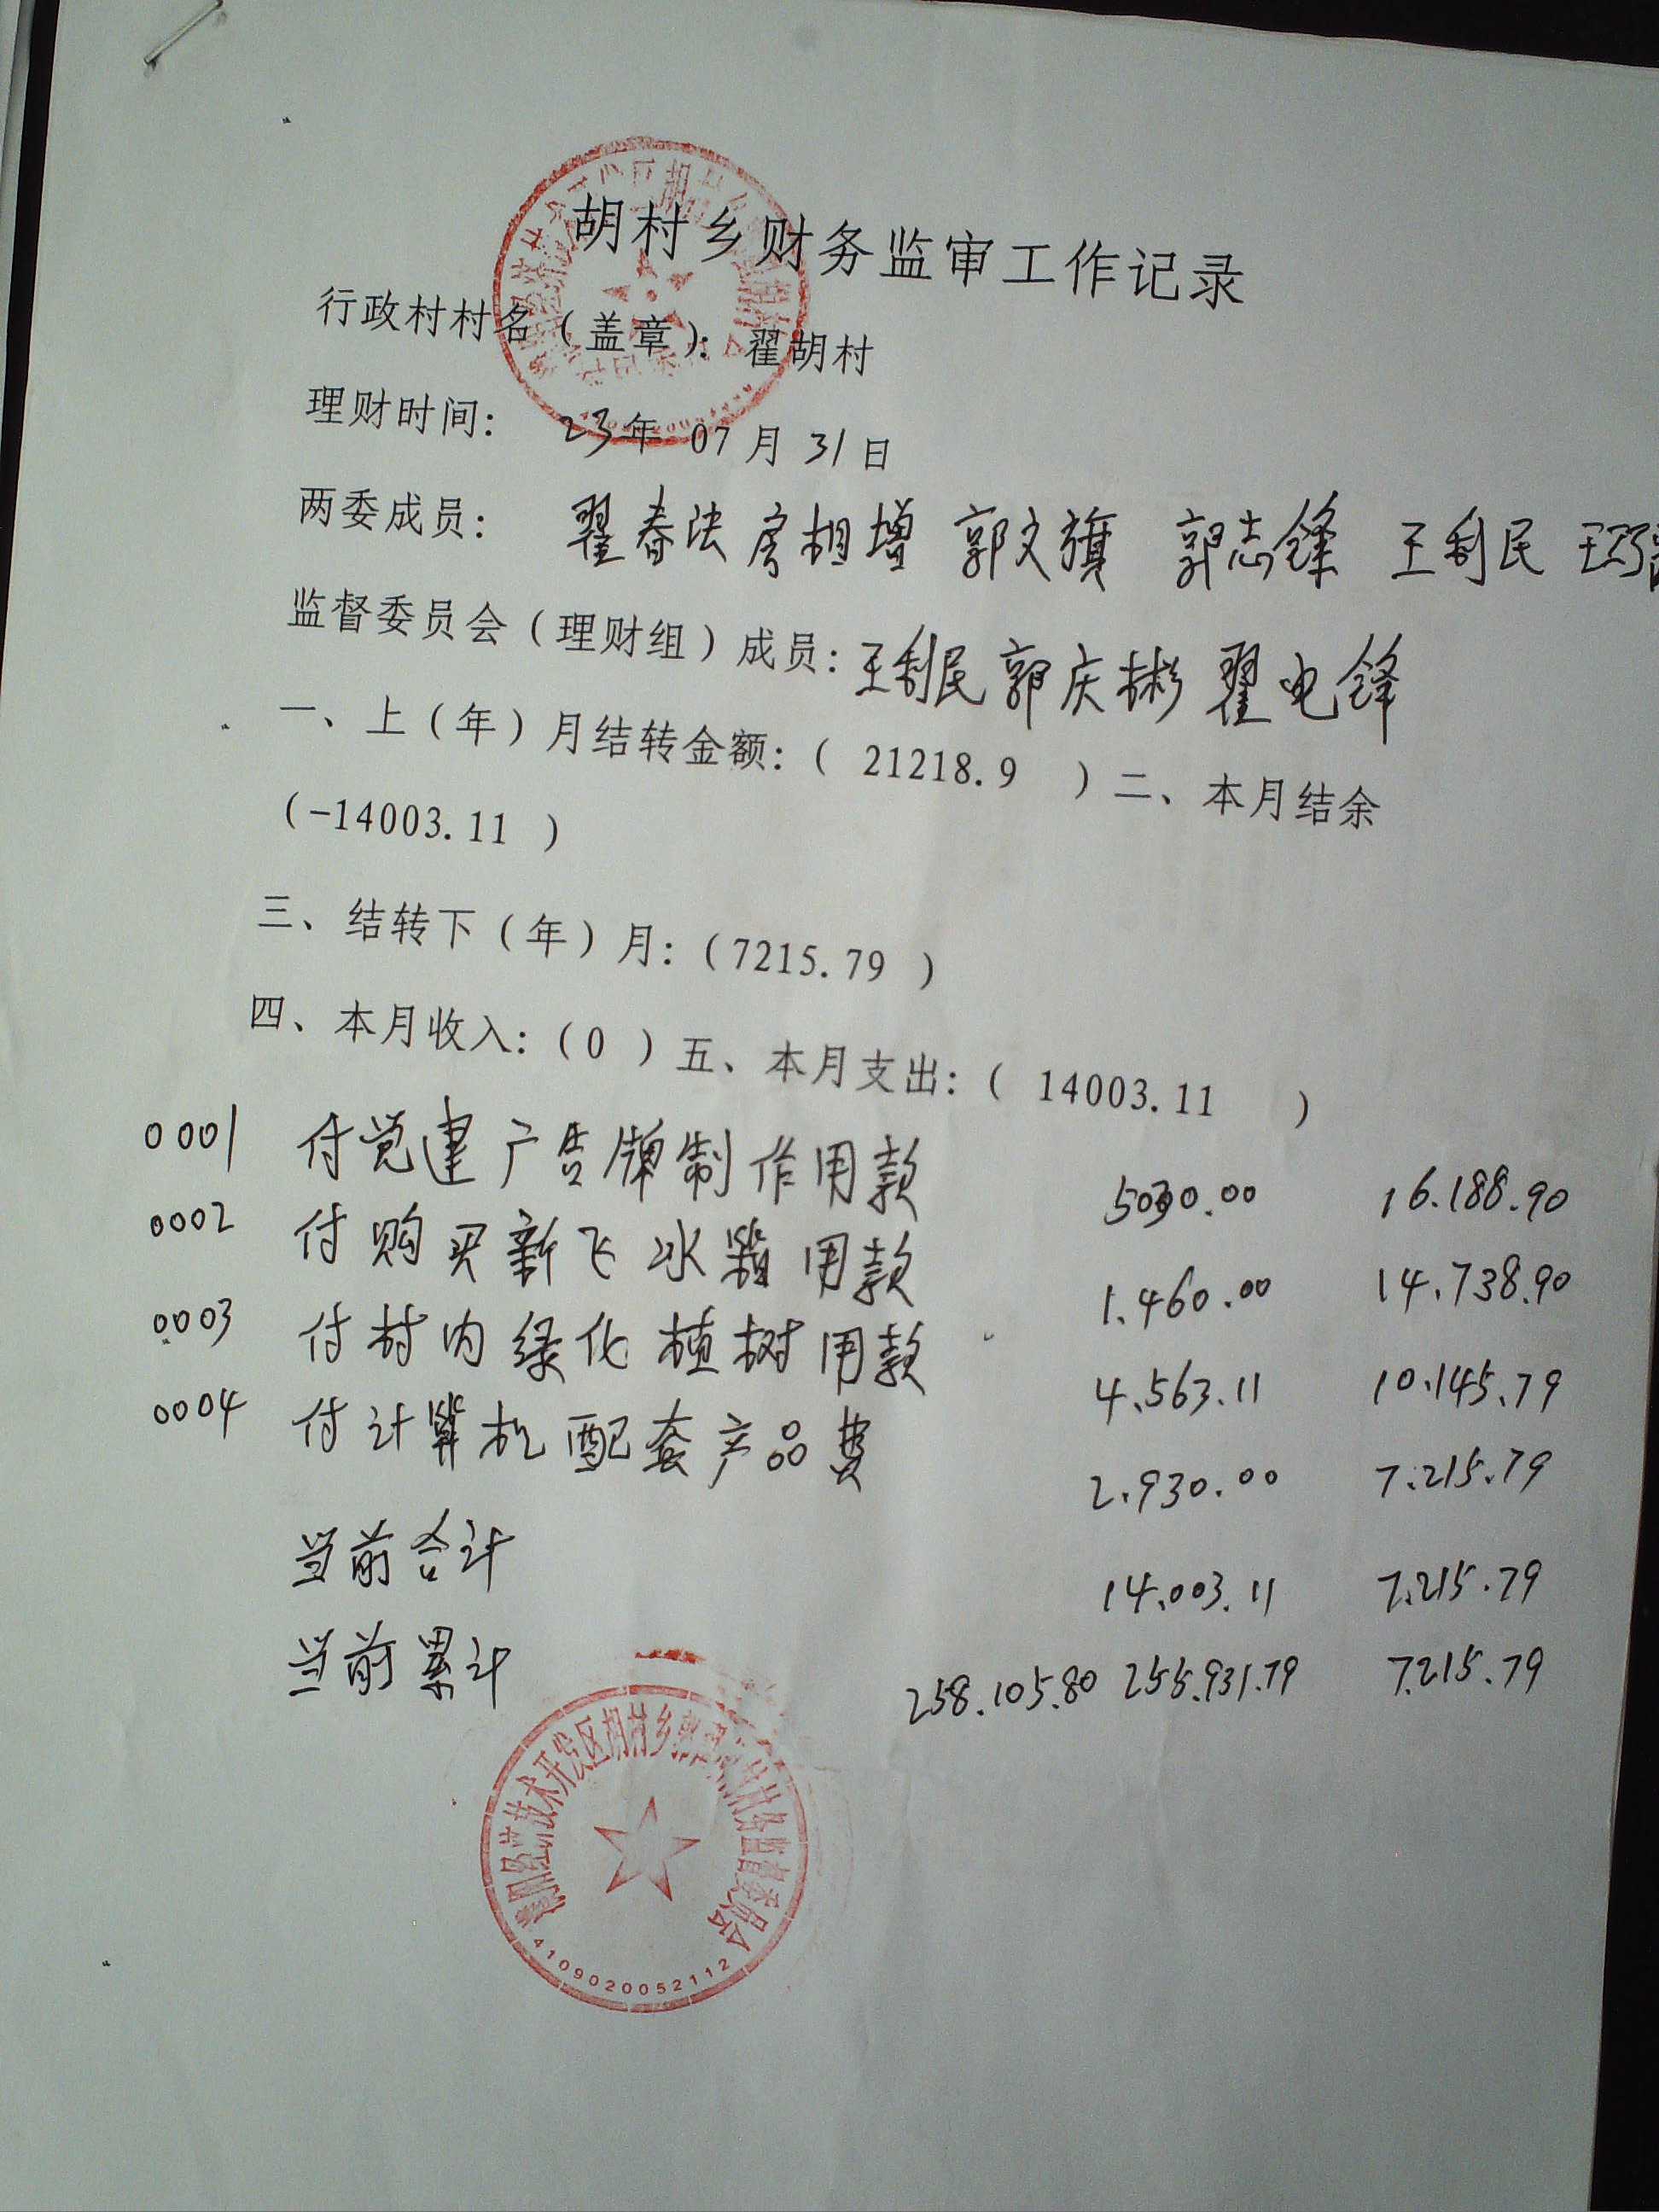 胡村乡财务监审工作记录
行政村村名（盖章）：翟胡村
理财时间： 23年 07月 31日
两委成员： 翟春法 房相增 郭文旗 郭志锋 王利民
监督委员会（理财组）成员：王利民 郭庆彬 翟电锋
一、上（年）月结转金额：（ 21218.9 ）二、本月结余
（-14003.11 ）
三、结转下（年）月：（7215.79 ）
四、本月收入：（0 ）五、本月支出：（ 14003.11 ）
0001 付党建广告牌制作用款 5030.00 16.188.90
0002 付购买新飞冰箱用款 1.460.00 14.738.90
0003 付村内绿化植树用款 4.563.11 10.145.79
0004 付计算机配套产品费 2.930.00 7.215.79
当前合计 14.003.11 7.215.79
当前累计 258.105.80 255.931.79 7.215.79
技术开发区胡村乡 村务监督委员会
4109020052112